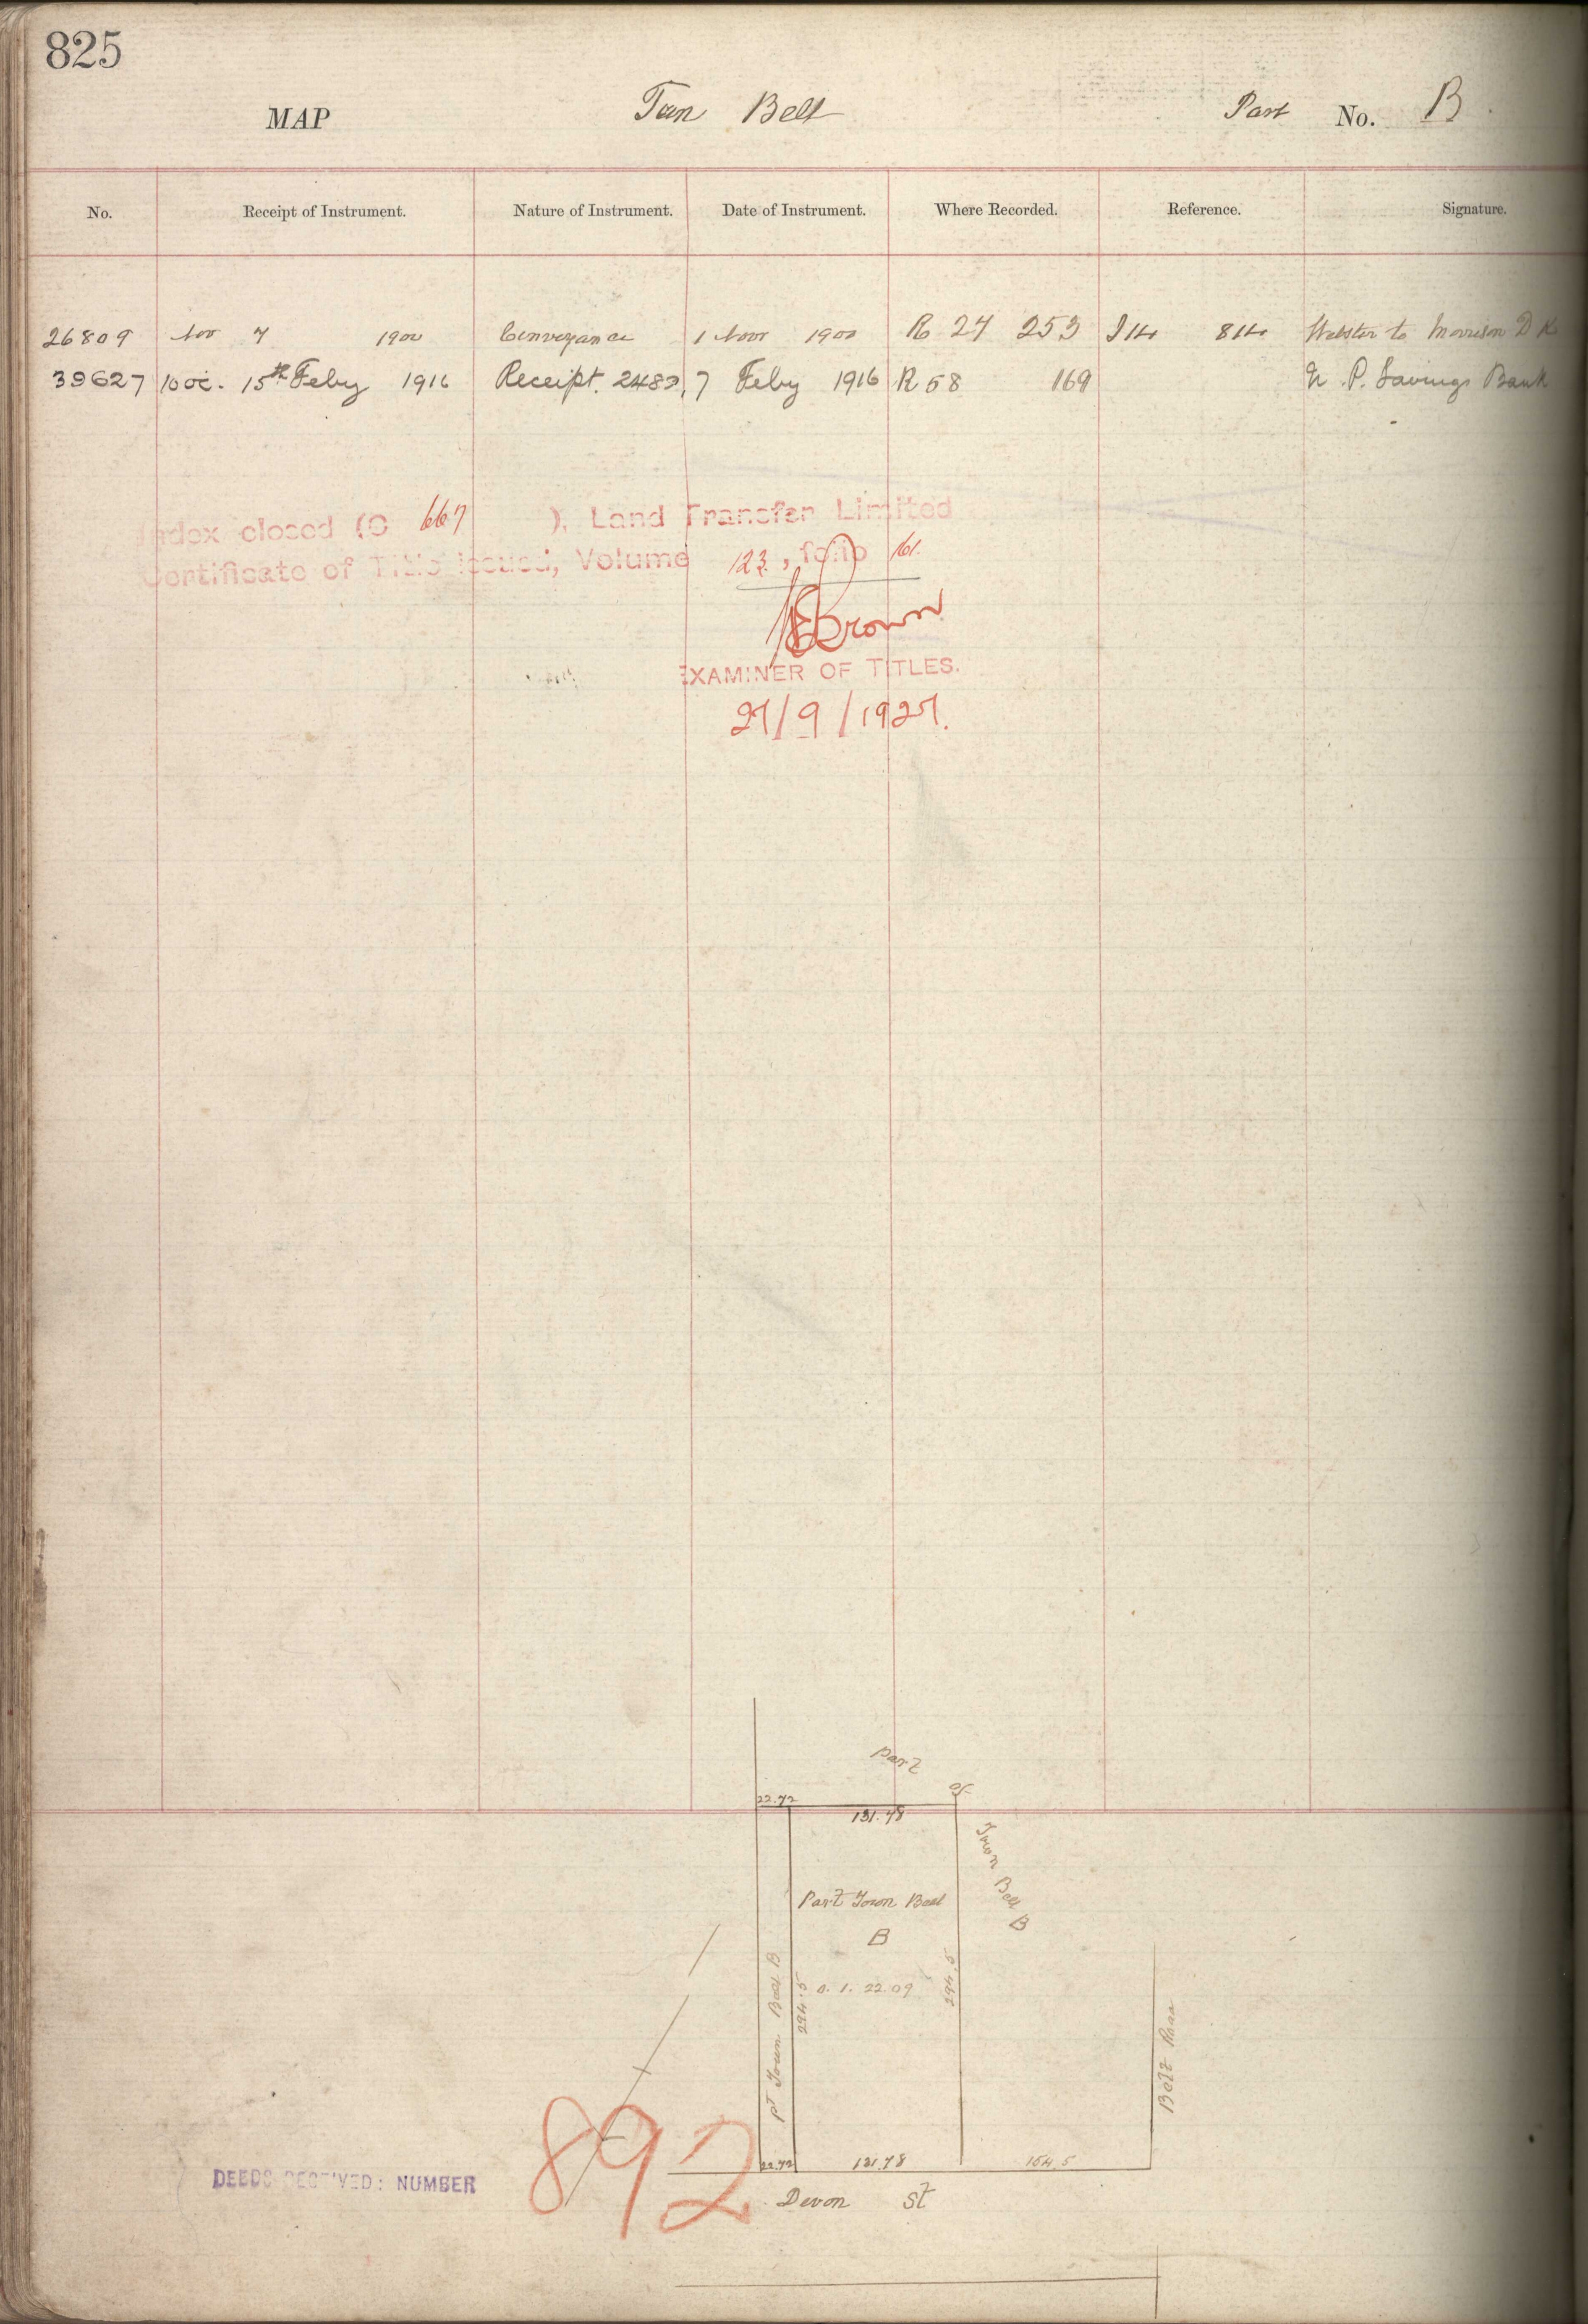 825
MAP Town Belt Part No. B
No. Receipt of Instrument. Nature of Instrument. Date of Instrument. Where Recorded. Reference. Signature.
26809 Nov 7 1900 Conveyance 1 Nov 1900 R 27 253 Webster to Morrison
39627 15th Feby 1916 Receipt. 7 Feby 1916 R 58 169 N. P. Savings Bank
Index closed (C 667 ), Land Transfer Limited
Certificate of Title issued, Volume 123, folio 161.
Brown
EXAMINER OF TITLES.
27/9/1927.
Part
of
22.72
131.78
Town Belt B
Part Town Belt
B
0. 1. 22.09
294.5
294.5
Pt Town Belt B
Belt Road
22.72 131.78 154.5
Devon St
892
DEEDS RECEIVED: NUMBER